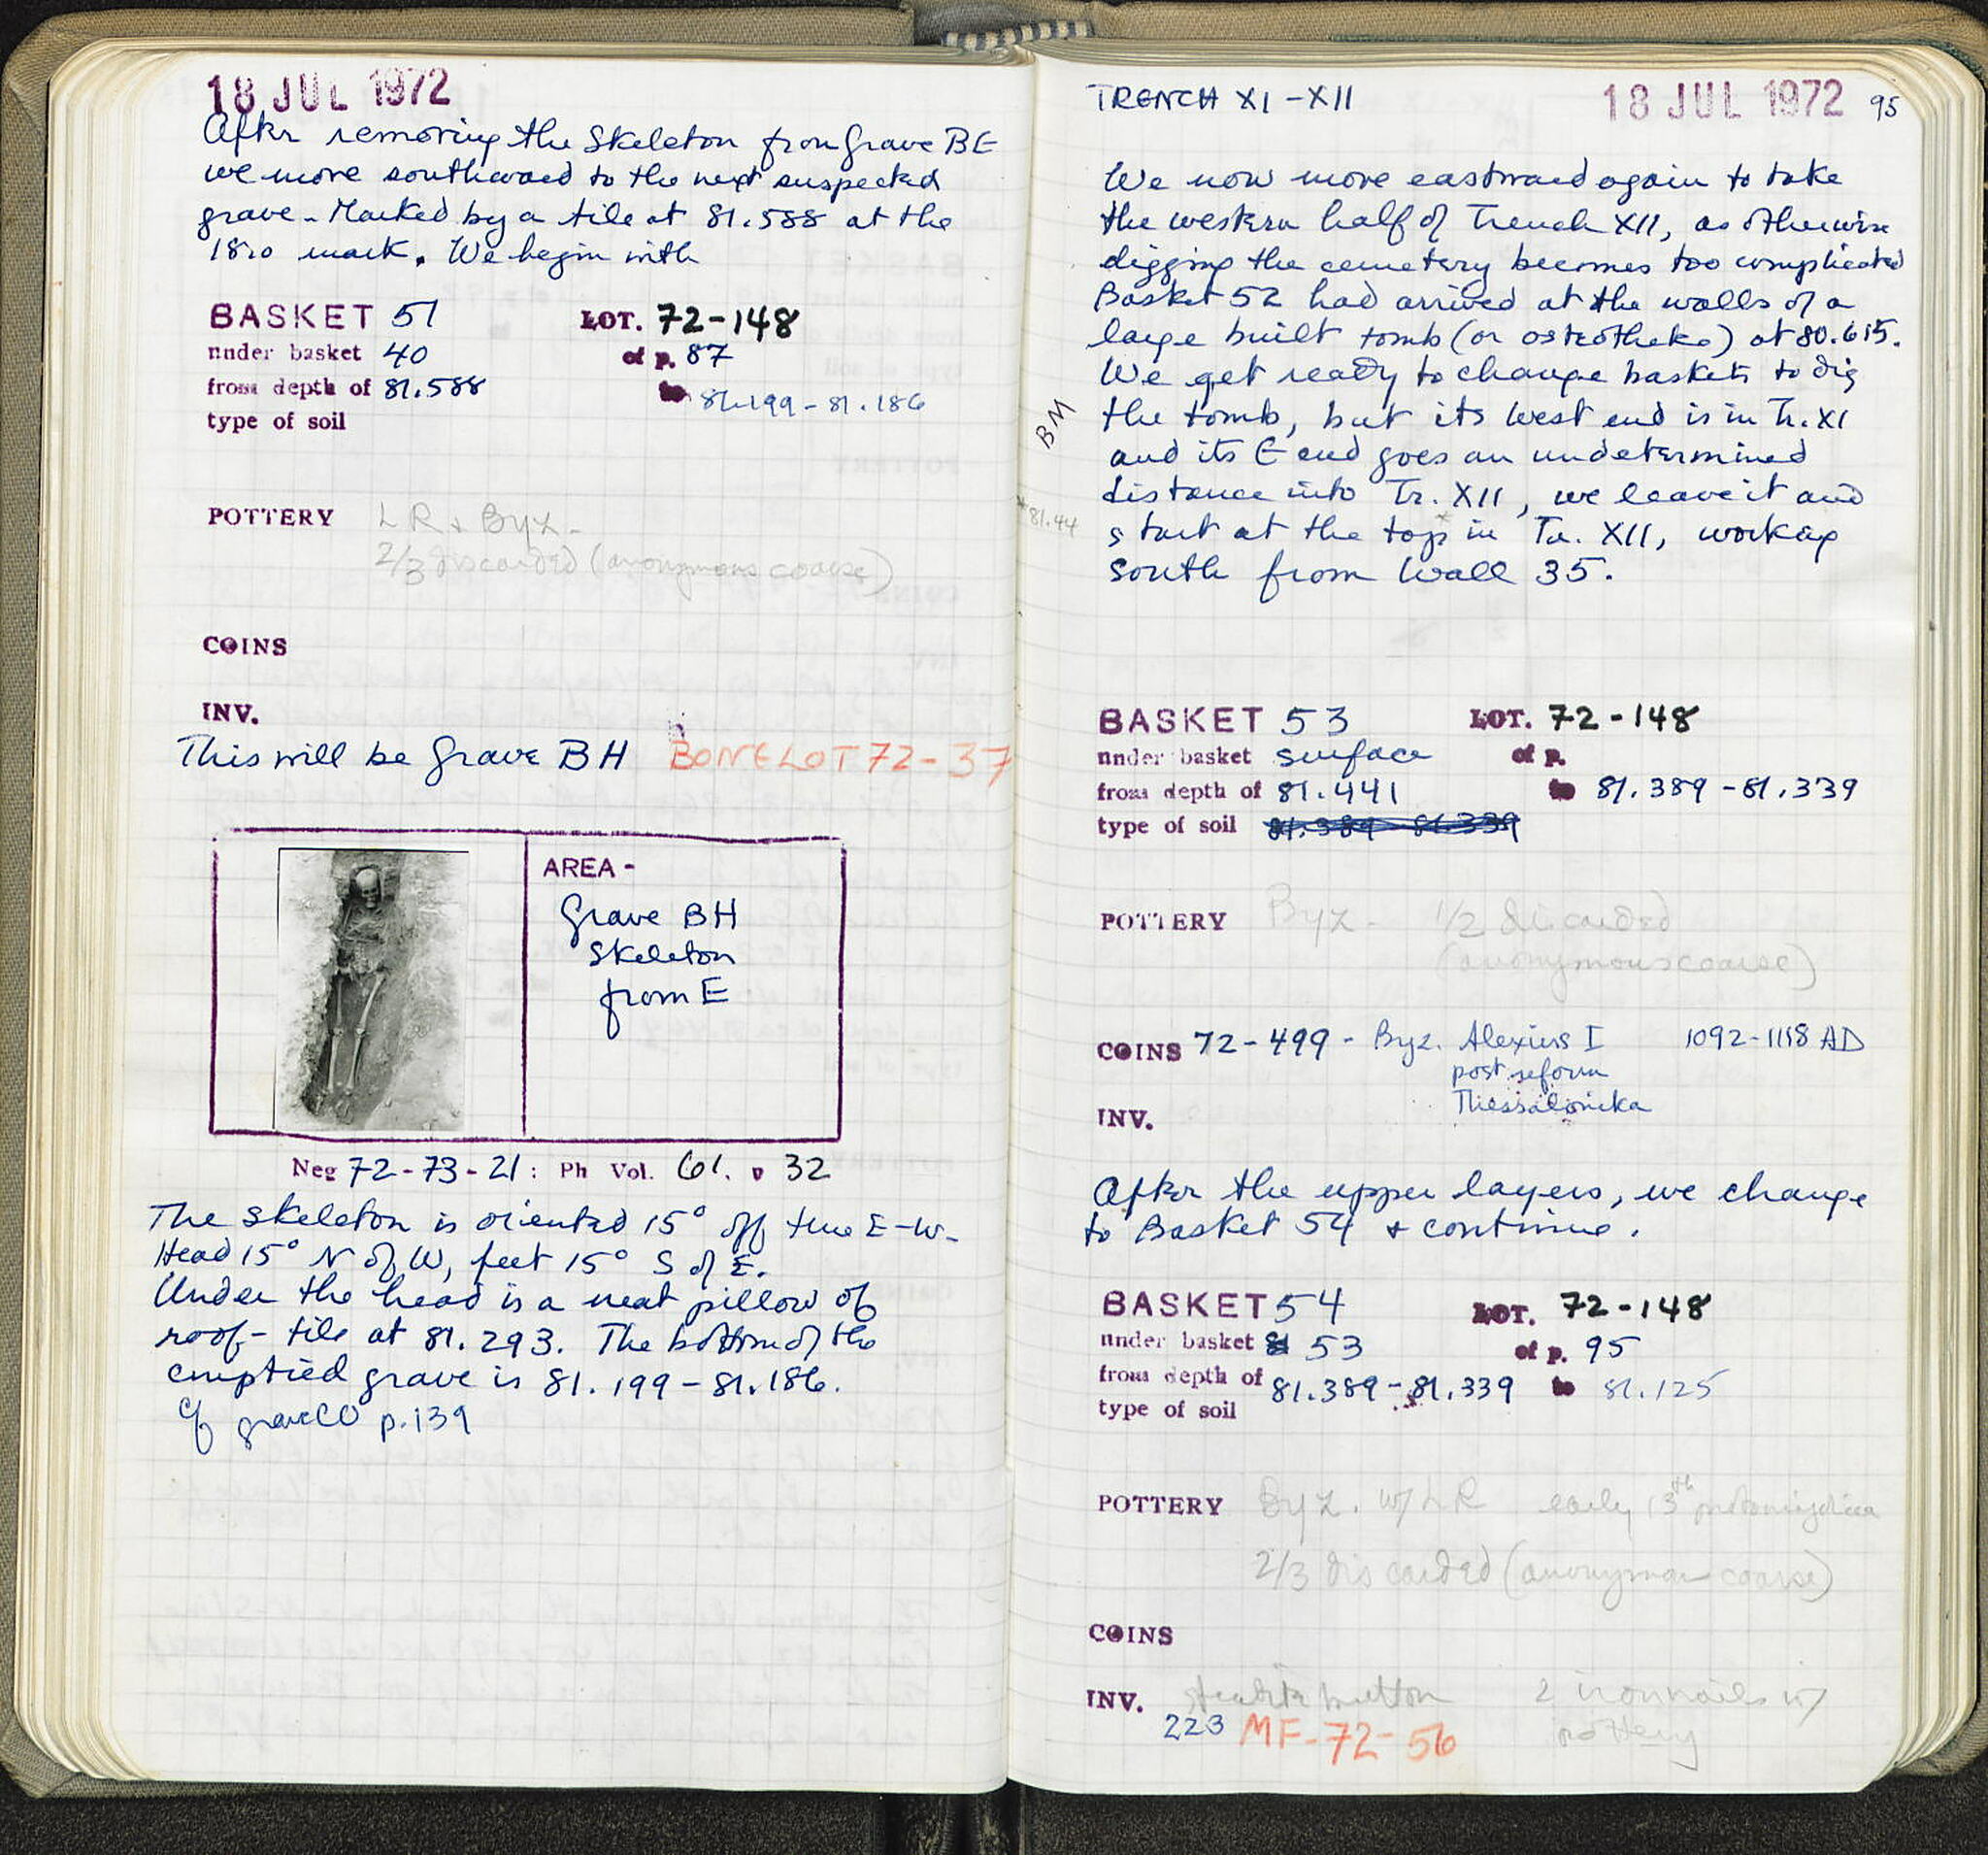 18 JUL 1972
After removing the skeleton from Grave BE
we move southward to the next suspected
grave - Marked by a tile at 81.588 at the
1820 mark. We begin with
BASKET 51 LOT. 72-148
under basket 40 of p. 87
from depth of 81.588 to 81.199 - 81.186
type of soil
POTTERY LR + Byz -
2/3 discarded (anonymous coarse)
COINS
INV.
This will be Grave BH BONE LOT 72-37
AREA -
Grave BH
Skeleton
from E
Neg 72-73-21: Ph Vol. 61. p 32
The skeleton is oriented 15° off true E-W-
Head 15° N of W, feet 15° S of E.
Under the head is a neat pillow of
roof-tile at 81.293. The bottom of the
emptied grave is 81.199-81.186.
Cf grave CO p.139
TRENCH XI-XII 18 JUL 1972 95
We now move eastward again to take
the western half of Trench XII, as otherwise
digging the cemetery becomes too complicated
Basket 52 had arrived at the walls of a
large built tomb (or osteotheke) at 80.615.
We get ready to change baskets to dig
BM
the tomb, but its west end is in Tr. XI
and its E end goes an undetermined
distance into Tr. XII, we leave it and
*81.44
start at the top* in Tr. XII, working
South from Wall 35.
BASKET 53 LOT. 72-148
under basket surface of p.
from depth of 81.441 to 81.389-81.339
type of soil 81.389-81.339
POTTERY Byz - 1/2 discarded
(anonymous coarse)
COINS 72-499 - Byz. Alexius I 1092-1118 AD
post reform
Thessalonika
INV.
After the upper layers, we change
to Basket 54 + continue.
BASKET 54 LOT. 72-148
under basket 53 of p. 95
from depth of 81.389-81.339 to 81.125
type of soil
POTTERY Byz. w/ LR early 13th
2/3 discarded (anonymous coarse)
COINS
INV. steatite button 2 iron nails w/
pottery
223 MF-72-56